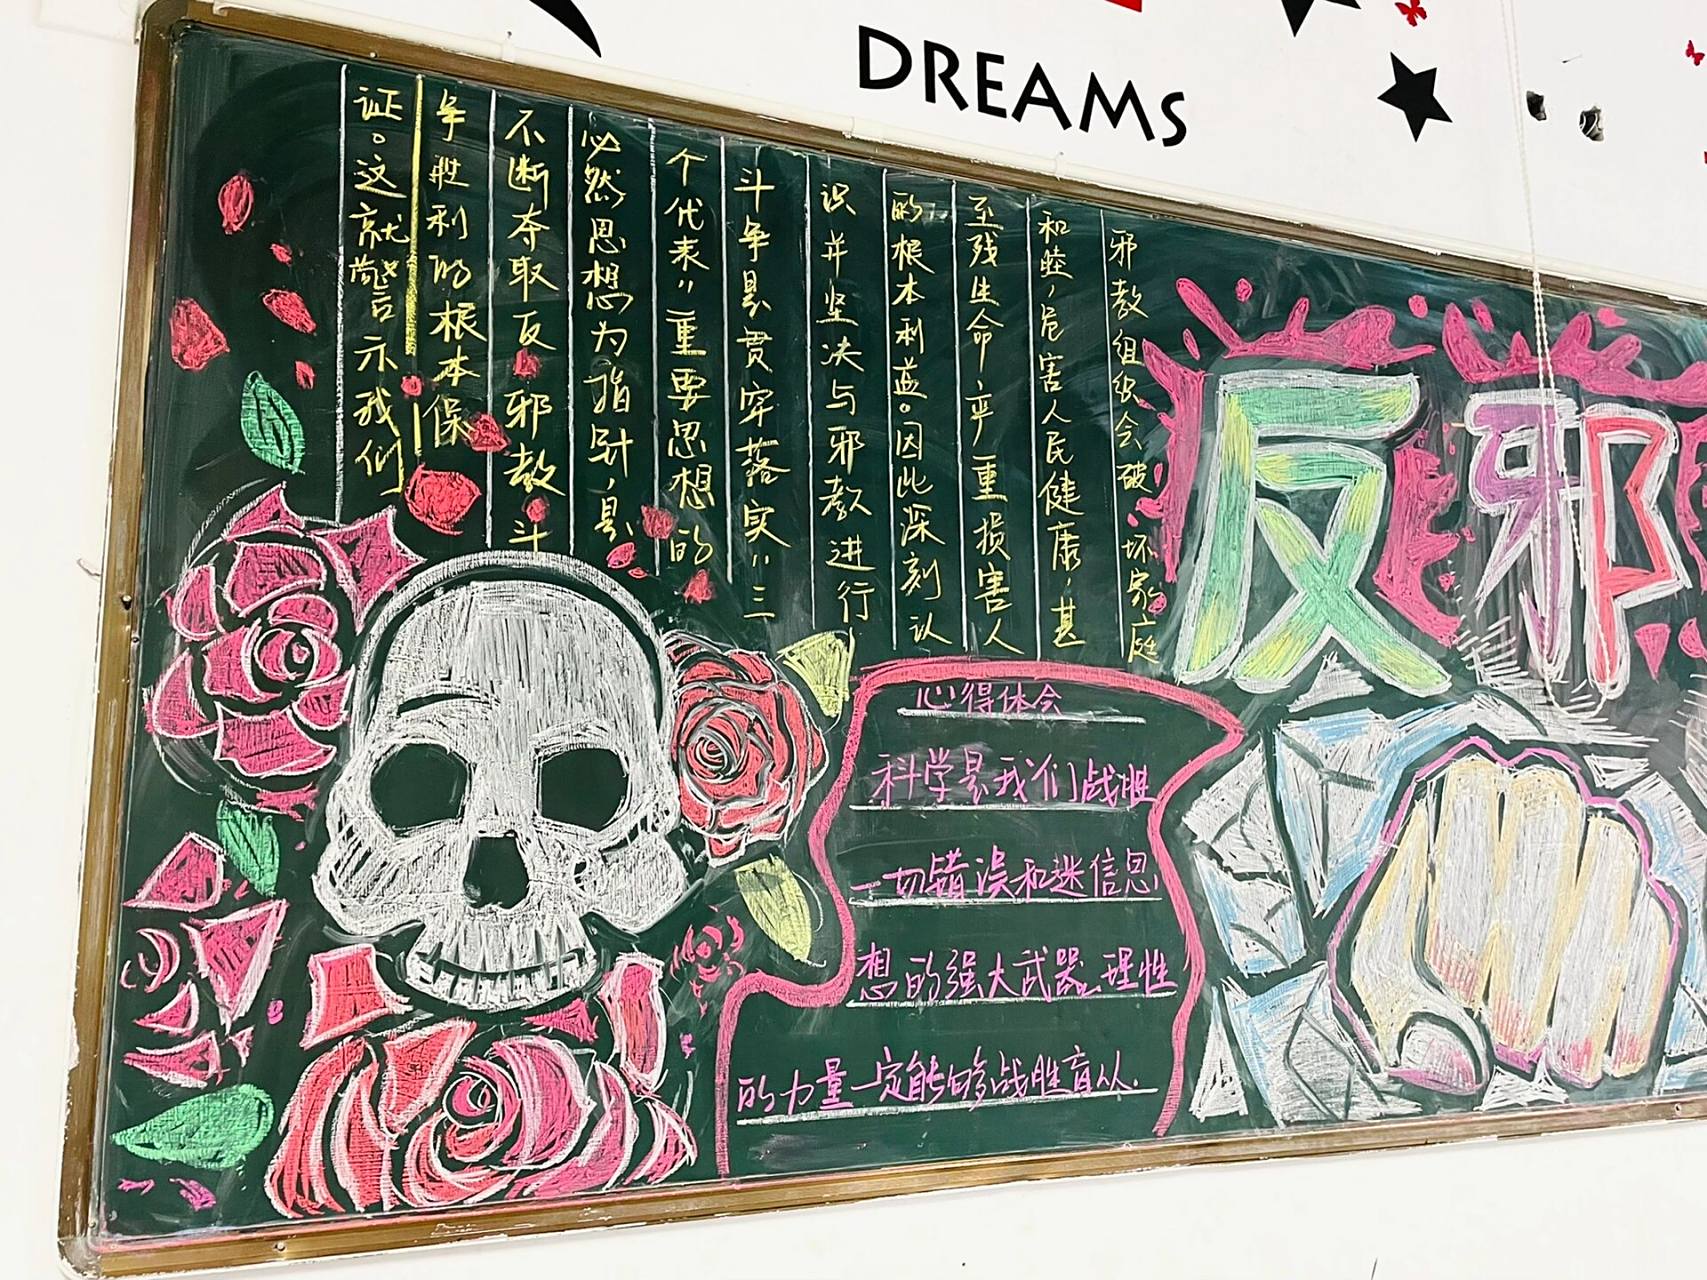 DREAMS
反邪
邪教组织会破坏家庭
和睦，危害人民健康，甚
至残生命严重损害人
的根本利益。因此深刻认
识并坚决与邪教进行
斗争是贯穿落实"三
个代表"重要思想的
必然思想为指针，是
不断夺取反邪教斗
争胜利的根本保
证。这就警示我们
心得体会
科学是我们战胜
一切错误和迷信思
想的强大武器、理性
的力量一定能够战胜盲从.